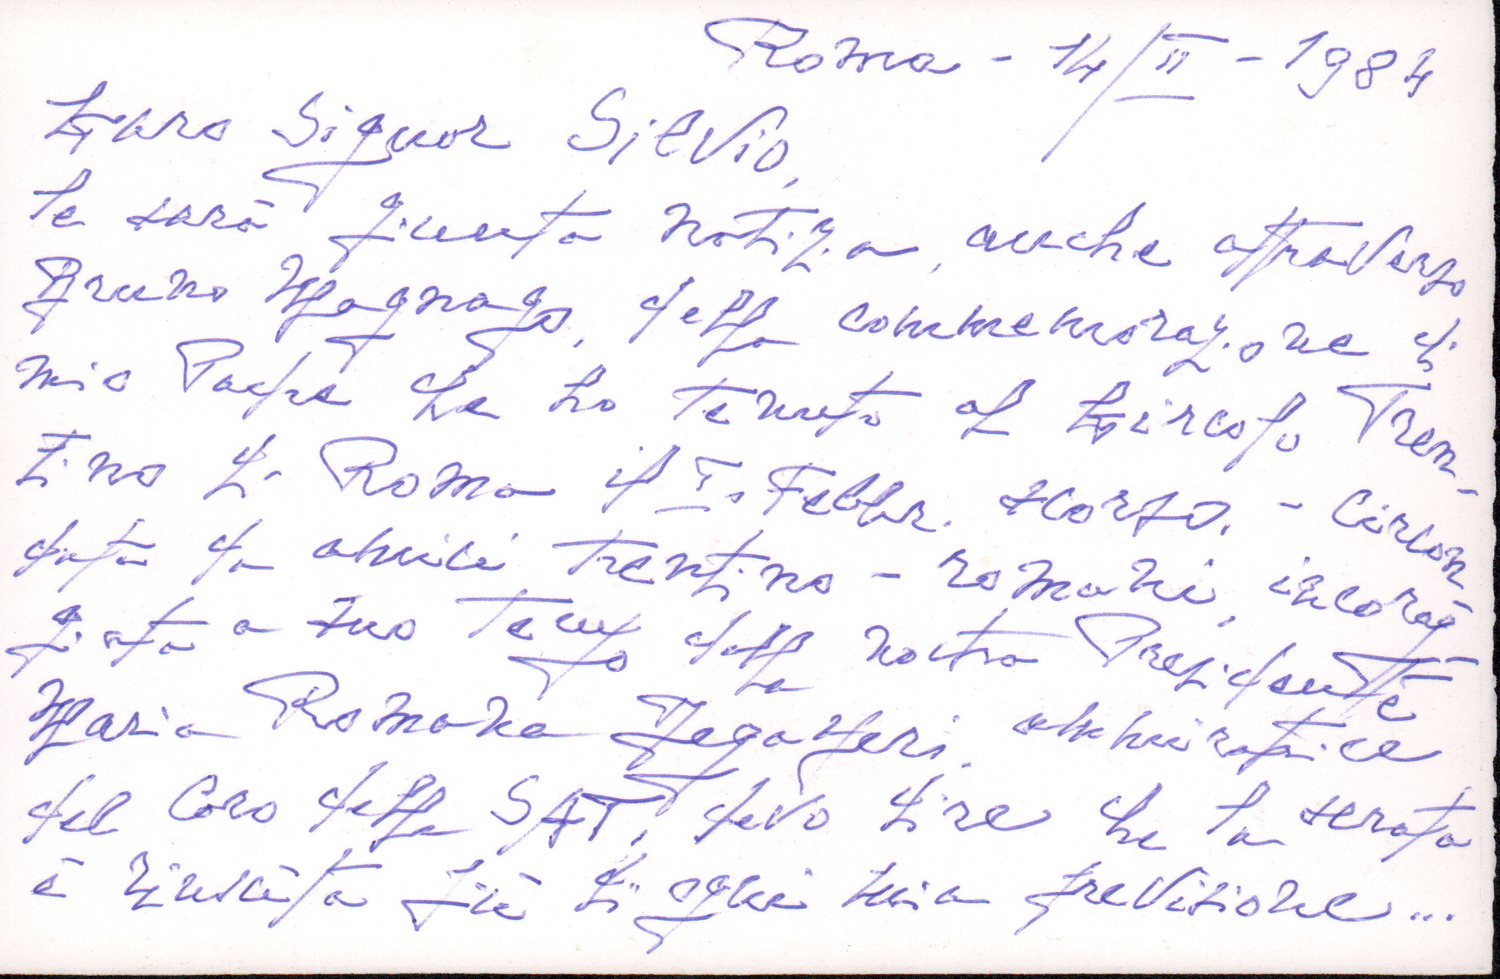 Roma - 14/II - 1984
Caro Signor Silvio,
le sarà giunta notizia, anche attraverso
Bruno Magnago, della commemorazione di
mio Padre che ho tenuto al Circolo Tren-
tino di Roma il I. Febbr. scorso. - Circon
data da amici trentino - romani, incorag
giata a suo tempo dalla nostra Presidente
Maria Romana ammiratrice
del Coro della SAT, devo dire che la serata
è riuscita più di ogni mia previsione...